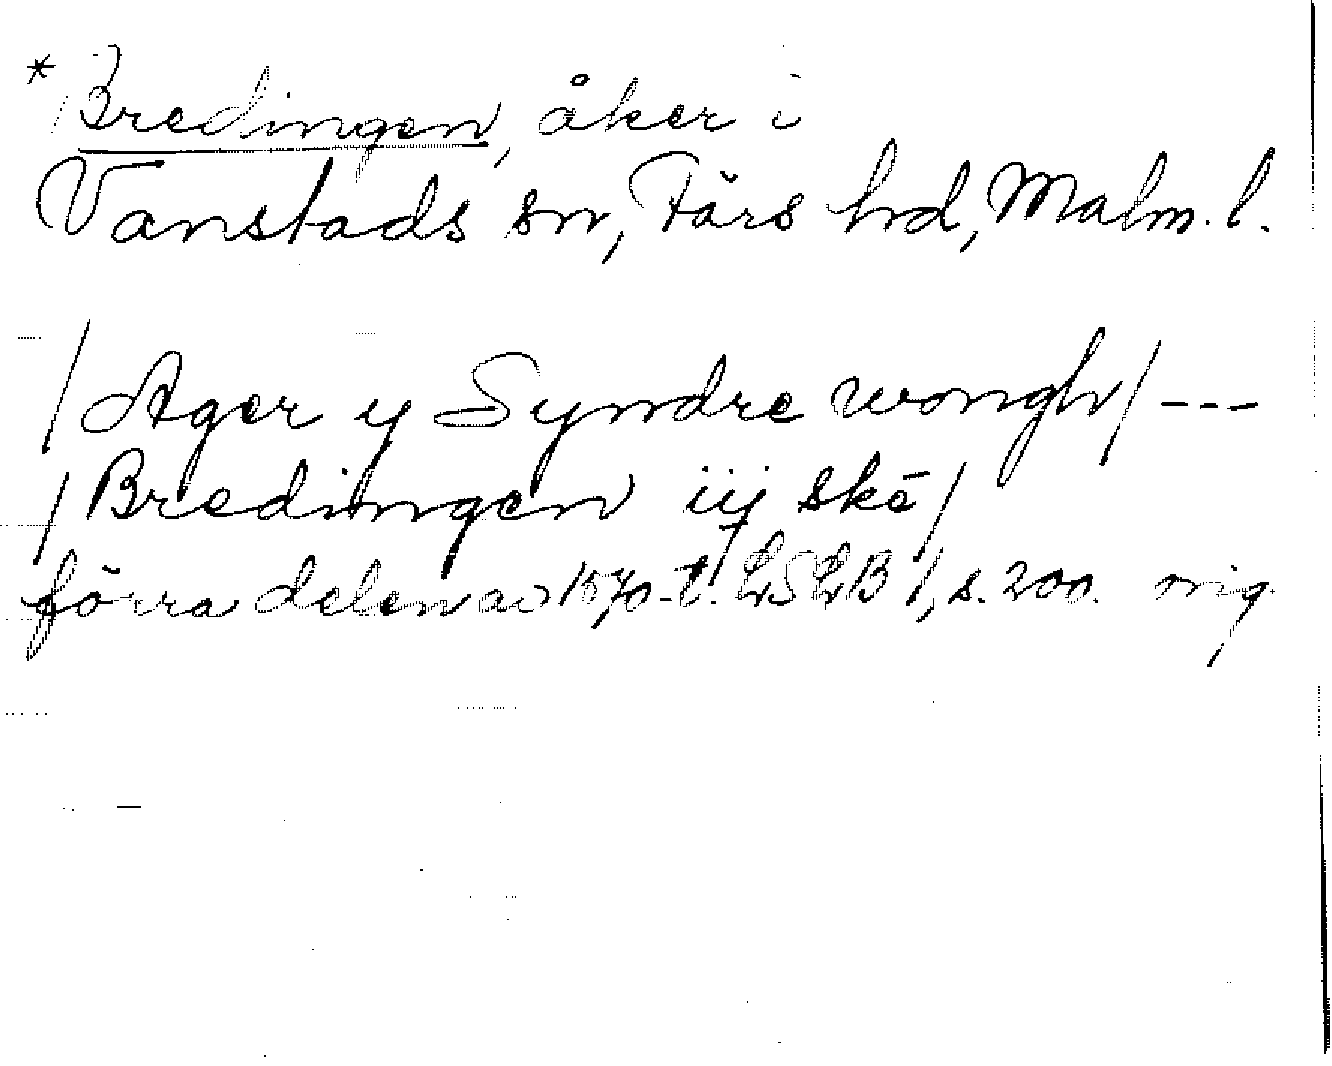 * Bredingen, åker i
Vanstads sn, Färs hd, Malm. l.
/Ager y Syndre wongh/ ---
/Bredingen iij skē/
förra delen av 1570-t. LSLB 1, s. 200. orig.